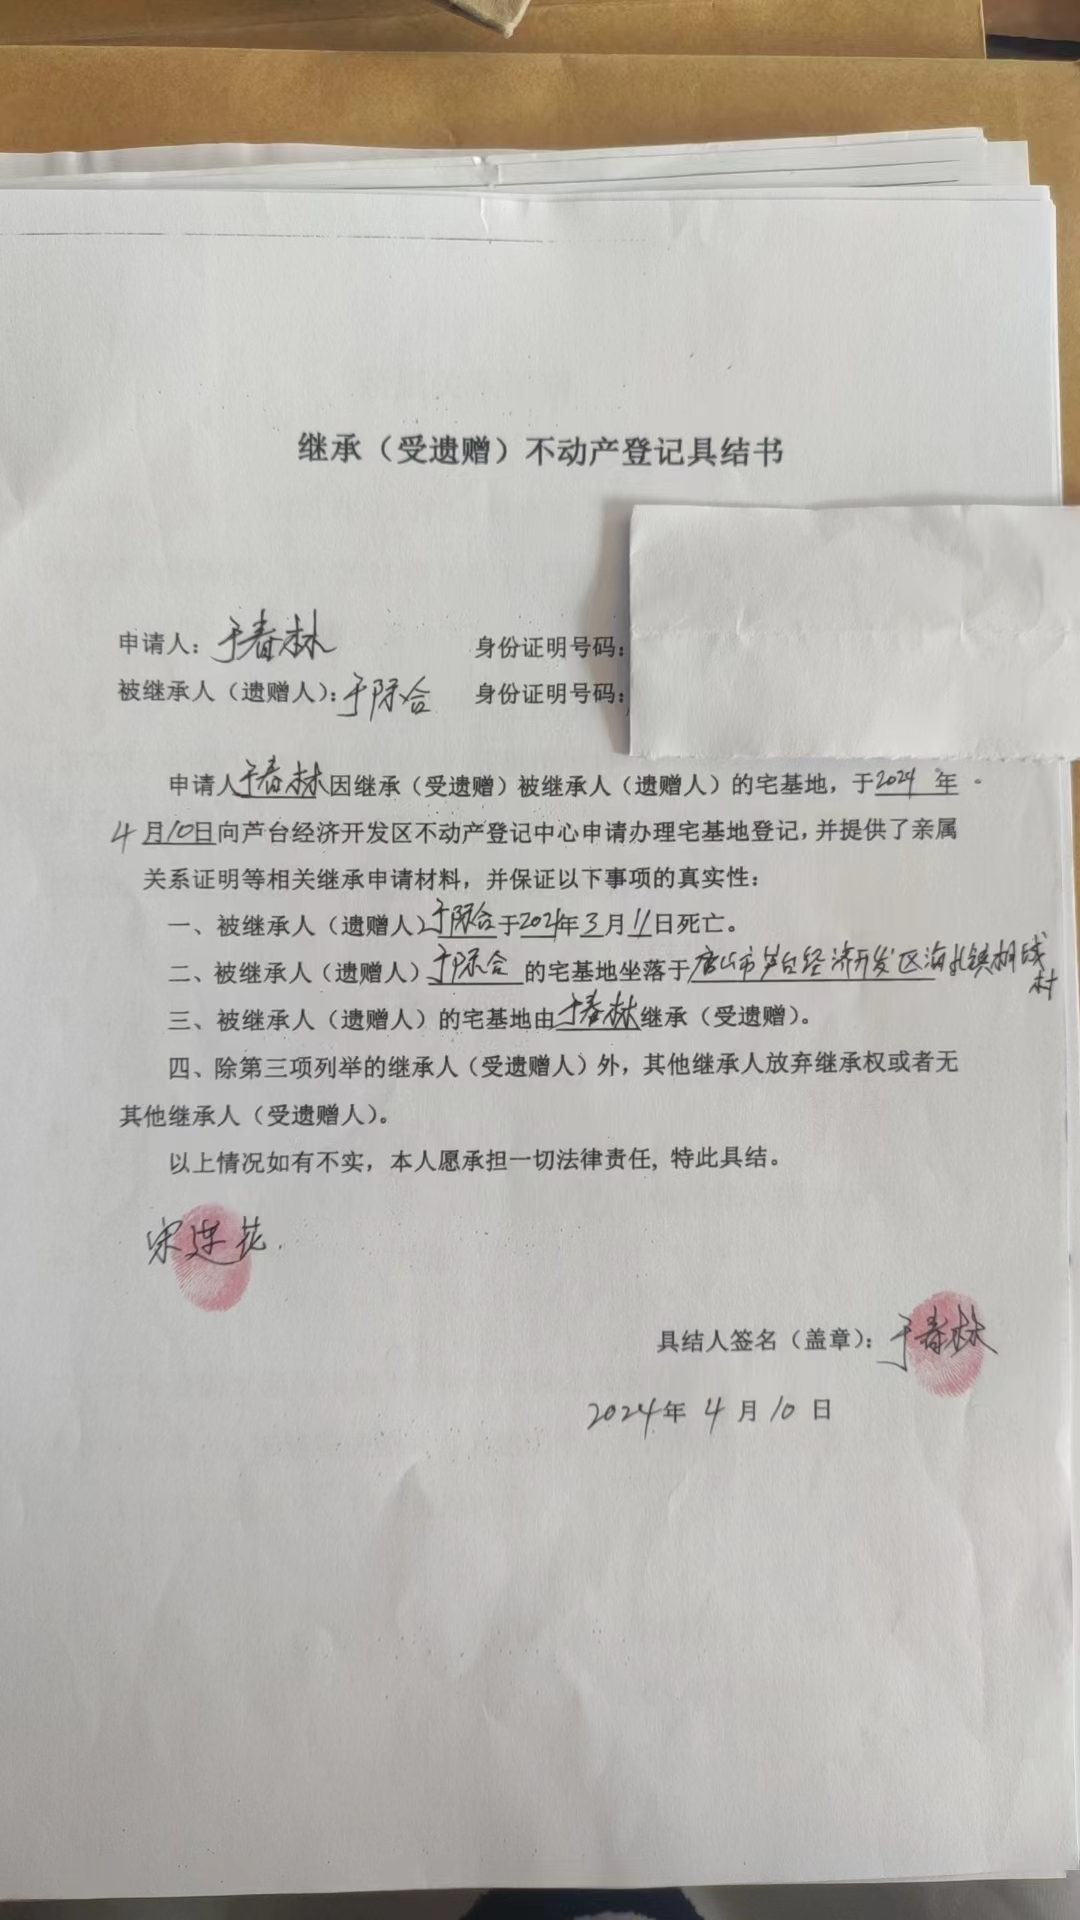 继承（受遗赠）不动产登记具结书
申请人：于春林 身份证明号码：
被继承人（遗赠人）：于际合 身份证明号码：
申请人于春林因继承（受遗赠）被继承人（遗赠人）的宅基地，于2024年
4月10日向芦台经济开发区不动产登记中心申请办理宅基地登记，并提供了亲属
关系证明等相关继承申请材料，并保证以下事项的真实性：
一、被继承人（遗赠人）于际合于2021年3月11日死亡。
二、被继承人（遗赠人）于际合的宅基地坐落于唐山市芦台经济开发区海北镇
村
三、被继承人（遗赠人）的宅基地由于春林继承（受遗赠）。
四、除第三项列举的继承人（受遗赠人）外，其他继承人放弃继承权或者无
其他继承人（受遗赠人）。
以上情况如有不实，本人愿承担一切法律责任，特此具结。
宋莲花
具结人签名（盖章）：于春林
2024年4月10日